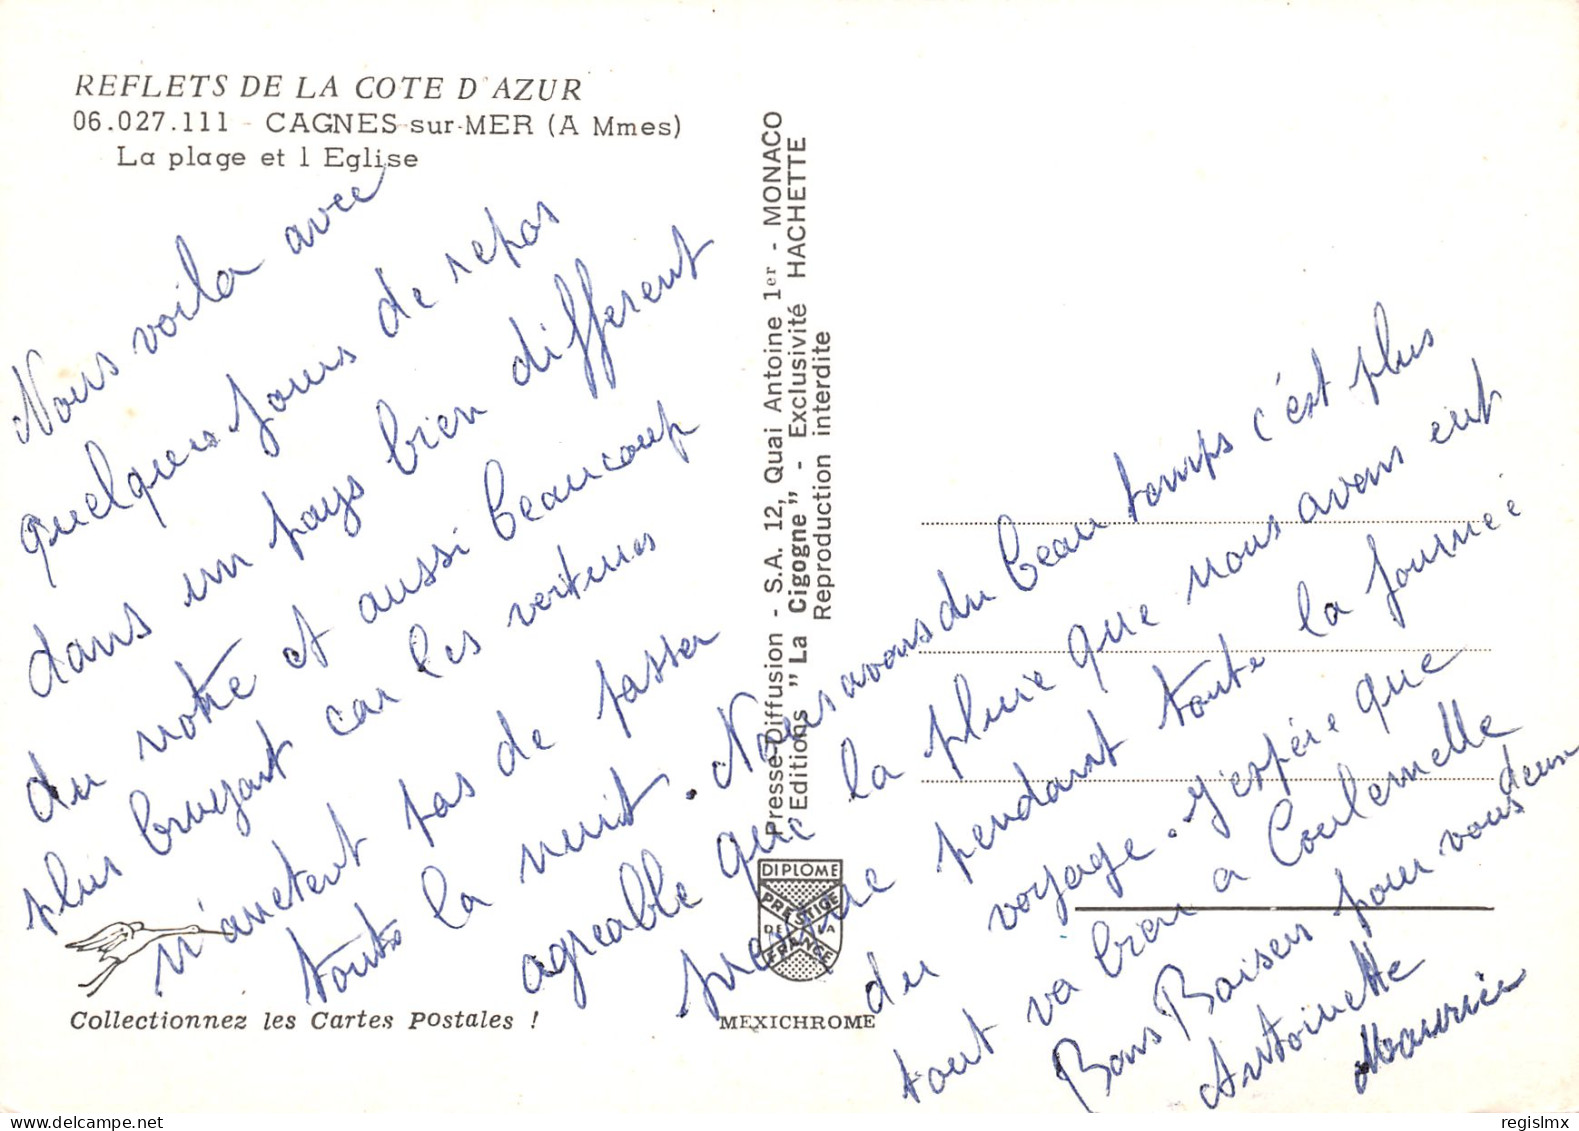 REFLETS DE LA COTE D'AZUR
06.027.111 - CAGNES-sur-MER (A Mmes)
La plage et l Eglise
Nous voila avec
quelques jours de repos
dans un pays bien different
du notre et aussi beaucoup
plus bruyant car les voitures
n'arretent pas de passer
toute la nuit. Nous avons du beau temps c'est plus
agreable que la pluie que nous avons eut
presque pendant toute la journée
du voyage. J'espére que
tout va bien a Coulemelle
Bons Baisers pour vous deux
Antoinette
Maurice
Presse-Diffusion - S.A. 12, Quai Antoine 1er - MONACO
"Editions "La Cigogne" - Exclusivité HACHETTE
Reproduction interdite
DIPLOME
PRESTIGE
DE LA
FRANCE
Collectionnez les Cartes Postales !
MEXICHROME
regislmx